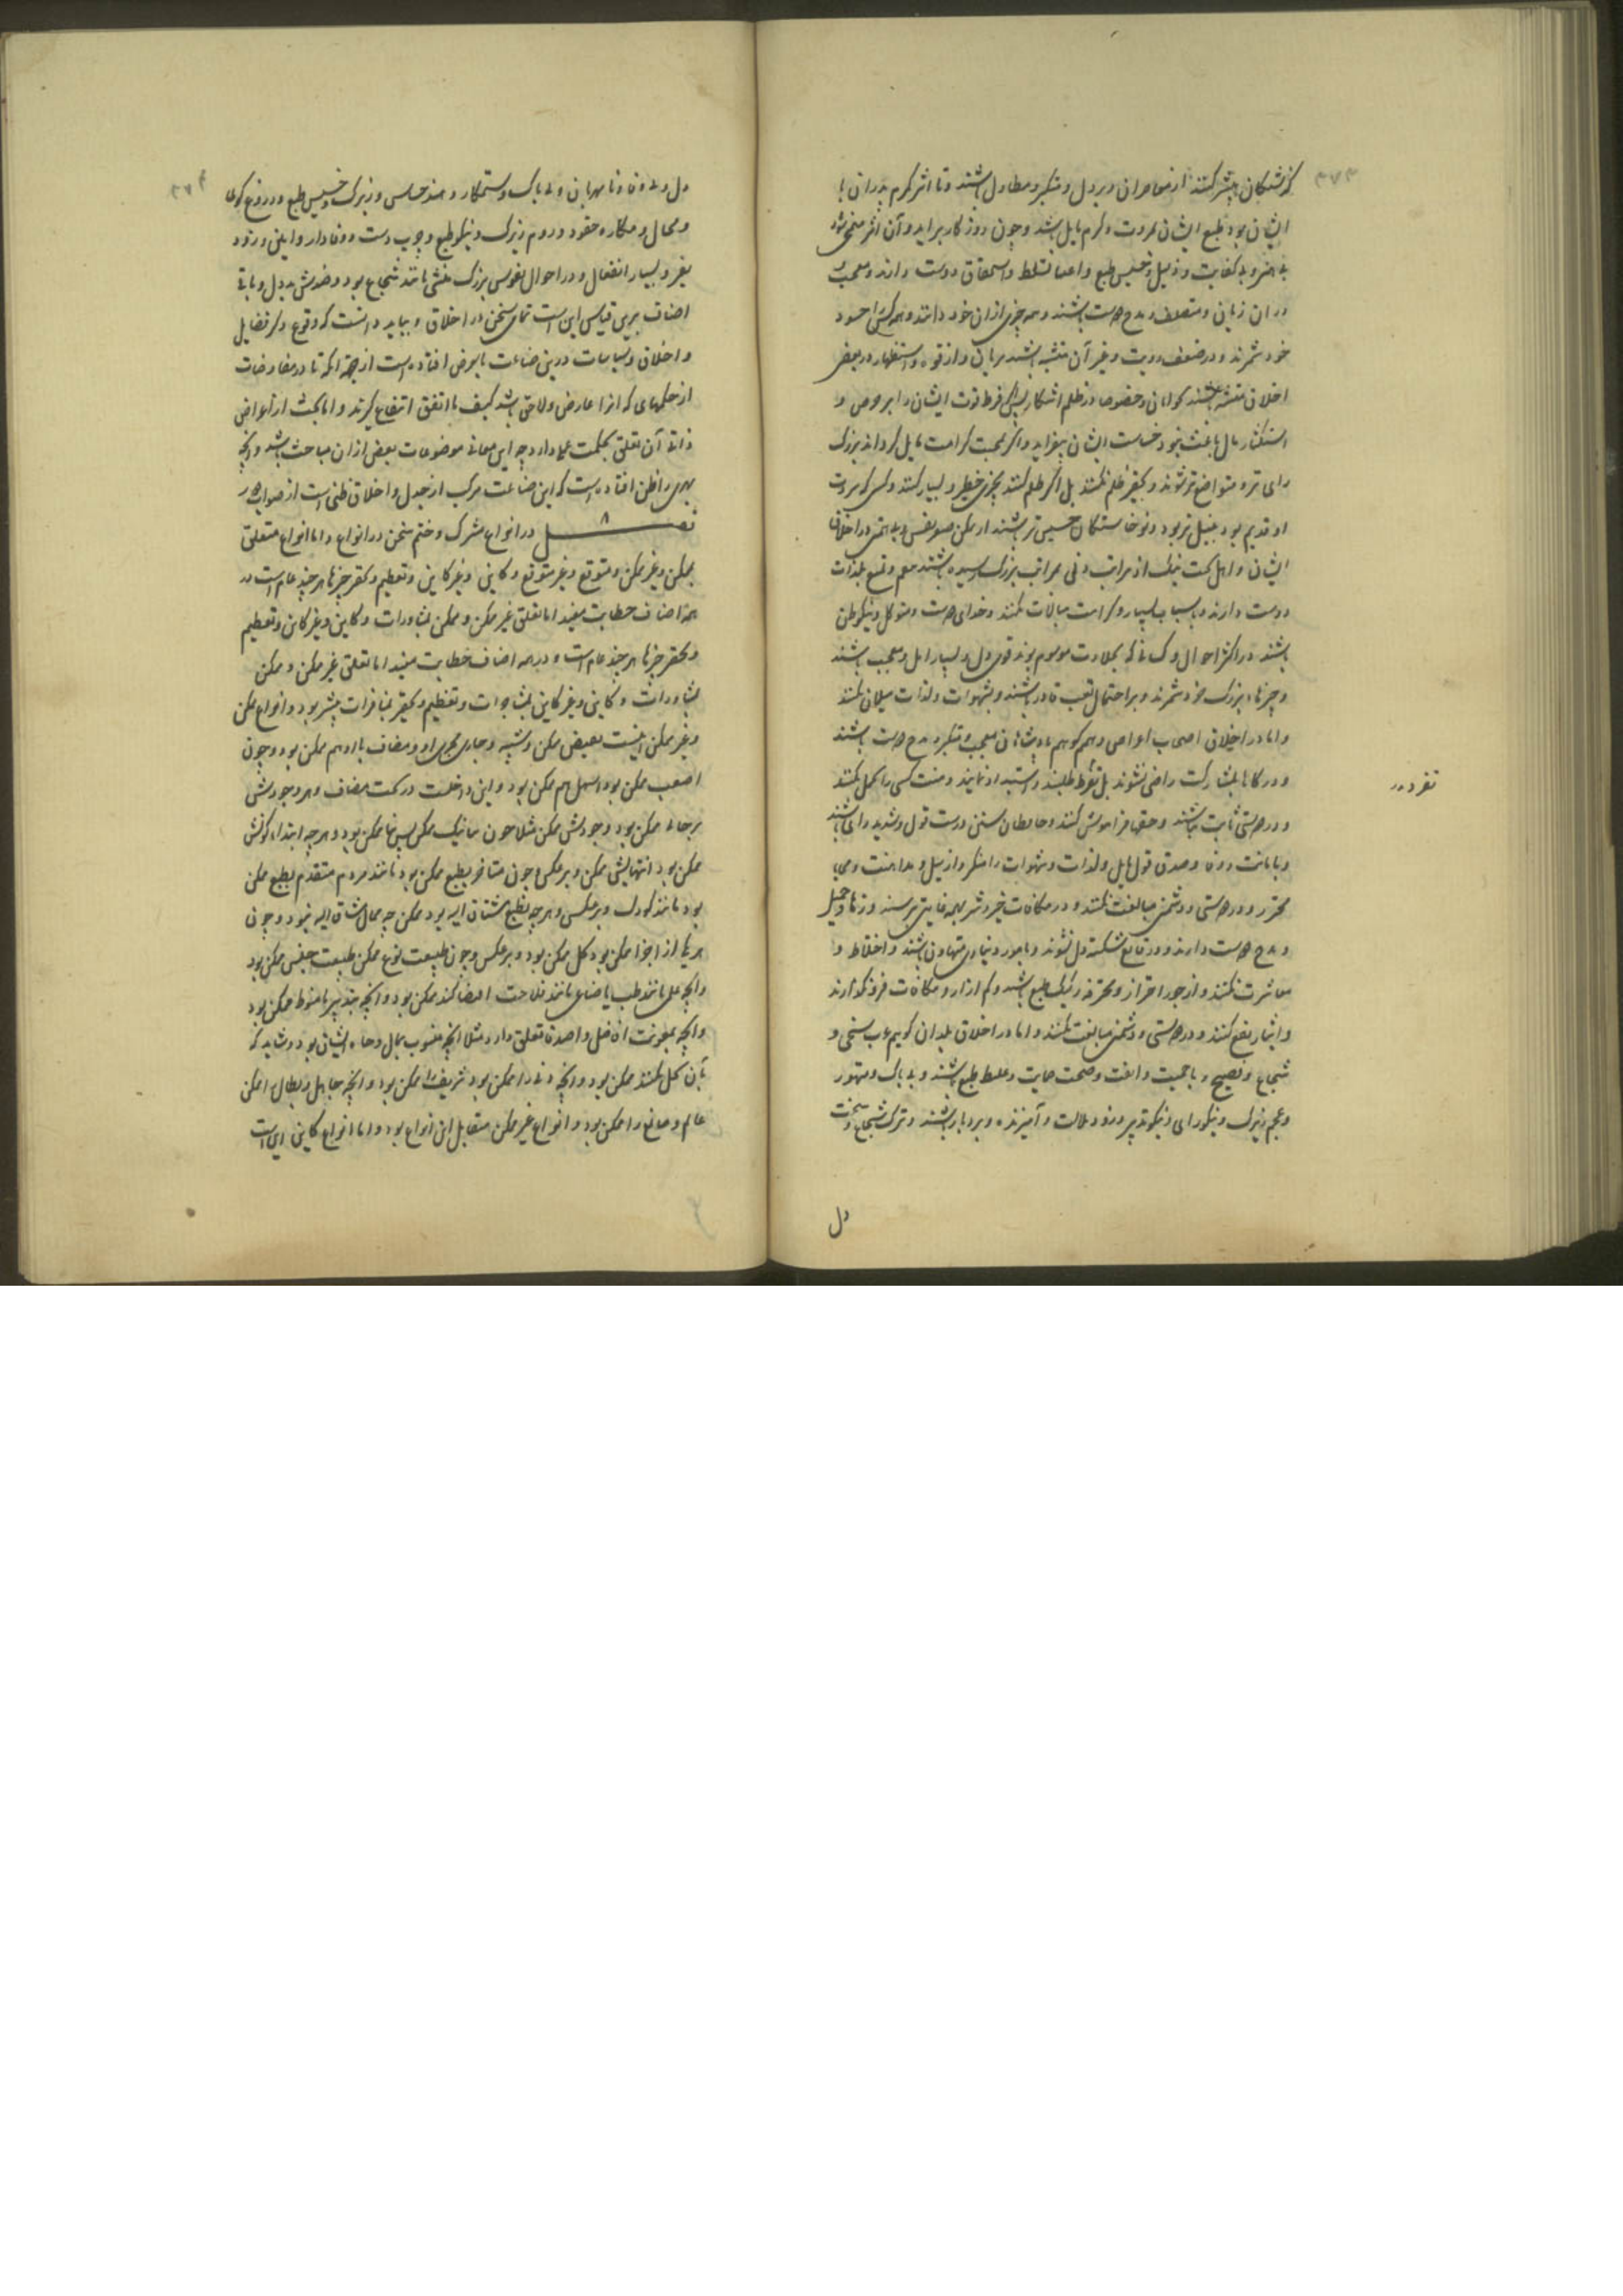 ۳۷۳
گذشتکان بیشتر کنند از معاصران و بددل و متکبر و مطاول باشند و تا اثر کرم پدران با
ایشان بود طبع ایشان بمروت و کرم مایل باشد و چون روزکار براید و آن اثر منمحی شود
بی هنر و بی کفایت و ذلیل و خسیس طبع و اغنیا تسلط و استحقاق دوست دارند و معجب
دراز زبان و متصلف و مدح دوست باشند و همه چیزی از آن خود دانند و همه کس را حسود
خود شمرند و در ضعف رویت و غیر آن متشبه باشند بزنان و از قوه و استظهار در بعضی
اخلاق متشبه باشند بجوانان و خصوصا در ظلم آشکار و فرط قوت ایشان را بر حرص و
استکثار مال باعث بود و خساست ایشان بیفزاید و اکر بمحبت کرامت مایل کردند بزرک
رای تر و متواضع تر شوند و بچیز حقیر ظلم نکنند بل اکر ظلم کنند بچیزی خطیر و بسیار کنند و کسی که ثروت
او قدیم بود نبیل تر بود و نوخاستکان خسیس تر باشند
ایشان و اهل بخت نیک از مراتب دنی بمراتب بزرک رسیده باشند و تمتع بلذات
دوست دارند و باسباب بسیار و کرامت مبالات نکنند و خدای دوست و متوکل و نیکوظن
باشند در اکثر احوال و کسانی که بجلادت موسوم بوند قوی دل و بسیار امل و معجب باشند
و چیزهاء بزرک خرد شمرند و بر احتمال تعب قادر باشند و بشهوات و لذات میلان نکنند
و اما در اخلاق اصحاب اعراض و هم کوییم پادشاهان معجب و متکبر و مدح دوست باشند
و در کارها بمشارکت راضی نشوند بل تفرد طلبند و استبداد نمایند و منت کسی را تحمل نکنند
تفرد در
و در دوستی ثابت نباشند و حقها فراموش کنند و حافظان سنن درست قول و شدید رای باشند
و بامانت و وفا و صدق قول مایل و لذات و شهوات را منکر و از میل و مداهنت و محابا
محترز و در دوستی و دشمنی مبالغت نکنند و در مکافات خیر و شر بهمه غایتی برسند و زهاد جمیل
و مدح دوست دارند و در وقایع شکسته دل نشوند و بامور دنیاوی متهاون باشند و اختلاط و
معاشرت نکنند و از جور احتراز و محترفه رکیک طبع باشند و کم آزار و مکافات فرو نکذارند
و ایثار نفع کنند و در دوستی و دشمنی مبالغت نکنند و اما در اخلاق بلدان کوییم عرب سخی و
شجاع و فصیح و با حمیت و انفت و صحت حمایت و غلیظ طبع باشند و بی باک و متهور
و عجم زیرک و نیکورای و نیکوتدبیر و زود ملالت و آمیزنده و بردبار باشند و ترک شجاع و سخت
دل
۳۷۴
دل و بی وفا و نامهربان و بی باک و ستمکار و هند حساس و زیرک و خسیس طبع و دروغ کوی
و محتال و مکار و حقود و روم زیرک و نیکوطبع و چرب دست و وفادار و امین و زود
نفر و بسیار انفعال و در احوال نفوس بزرک منشی مانند شجاع بود و ضدش بددل و باقی
اصناف برین قیاس این است تمامی سخن در اخلاق و بباید دانست که وقوع ذکر فضایل
و اخلاق و سیاسات درین صناعت بالعرض افتاده است از جهت آنکه تا در مفاوضات
از حکمهای که آنرا عارض و لاحق باشد کیف ما اتفق انتفاع کیرند و اما بحث از اعراض
ذاتی آن تعلق بحکمت عملی دارد چه این معانی موضوعات بعضی از آن مباحث باشد و آنچه
بعضی را ظن افتاده است که این صناعت مرکب از جدل و اخلاق ظنی است از صواب دور
فصل ۸ در انواع مشترک و ختم سخن در انواع و اما انواع متعلق
بممکن و غیر ممکن و متوقع و غیر متوقع و کاین و غیر کاین و تعظیم و تحقیر چیزها هر چند عام است در
همه اصناف خطابت مفید اما تعلق غیر ممکن و ممکن بمشاورات و کاین و غیر کاین و تعظیم
و تحقیر چیزها هر چند عام است و در همه اصناف خطابت مفید اما تعلق غیر ممکن و ممکن
بمشاورات و کاین و غیر کاین بمشاجرات و تعظیم و تحقیر بمنافرات بیشتر بود و انواع ممکن
و غیر ممکن اینست نقیض ممکن و شبیه و جاری مجری او و مضاف با او هم ممکن بود و چون
اصعب ممکن بود اسهل هم ممکن بود و این داخلست در تحت مضاف و هر چه وجودش
ممکن بود وجودش ممکن مثلا چون ممکن بود و هر چه ابتداء کونش
ممکن بود انتهایش ممکن و بر عکس و چون متاخر بطبع ممکن بود مانند مردم متقدم بطبع ممکن
بود مانند کودک و بر عکس و هر چه بطبع مشتاق الیه بود ممکن چه محال مشتاق الیه نبود و چون
هر یک از اجزا ممکن بود کل ممکن بود و بر عکس و چون طبیعت نوع ممکن طبیعت جنس ممکن بود
و آنچه علمی مانند طب یا صناعی مانند فلاحت اقتضا کند ممکن بود و آنچه بتدبیر ما منوط ممکن بود
و آنچه بمعونت افاضل و اصدقا تعلق دارد مثلا آنچه منسوب بمال و جاه ایشان بود و شاید که
بآن بخل نکنند ممکن بود و آنچه دنی را ممکن بود شریف را ممکن بود و آنچه جاهل و بطال را ممکن
عالم و صانع را ممکن بود و انواع غیر ممکن متقابل این انواع بود و اما انواع کاین این است